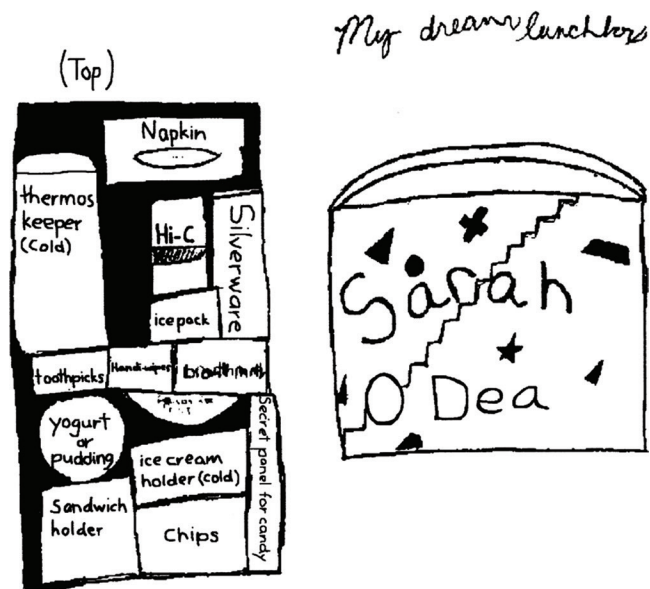 My dream lunchbox
(Top)
Napkin
thermos
keeper
(Cold)
Hi-C
Silverware
ice pack
toothpicks
Handi-wipes
breathmints
yogurt
or
pudding
ice cream
holder (cold)
Secret panel for candy
Sandwich
holder
Chips
Sarah
O'Dea